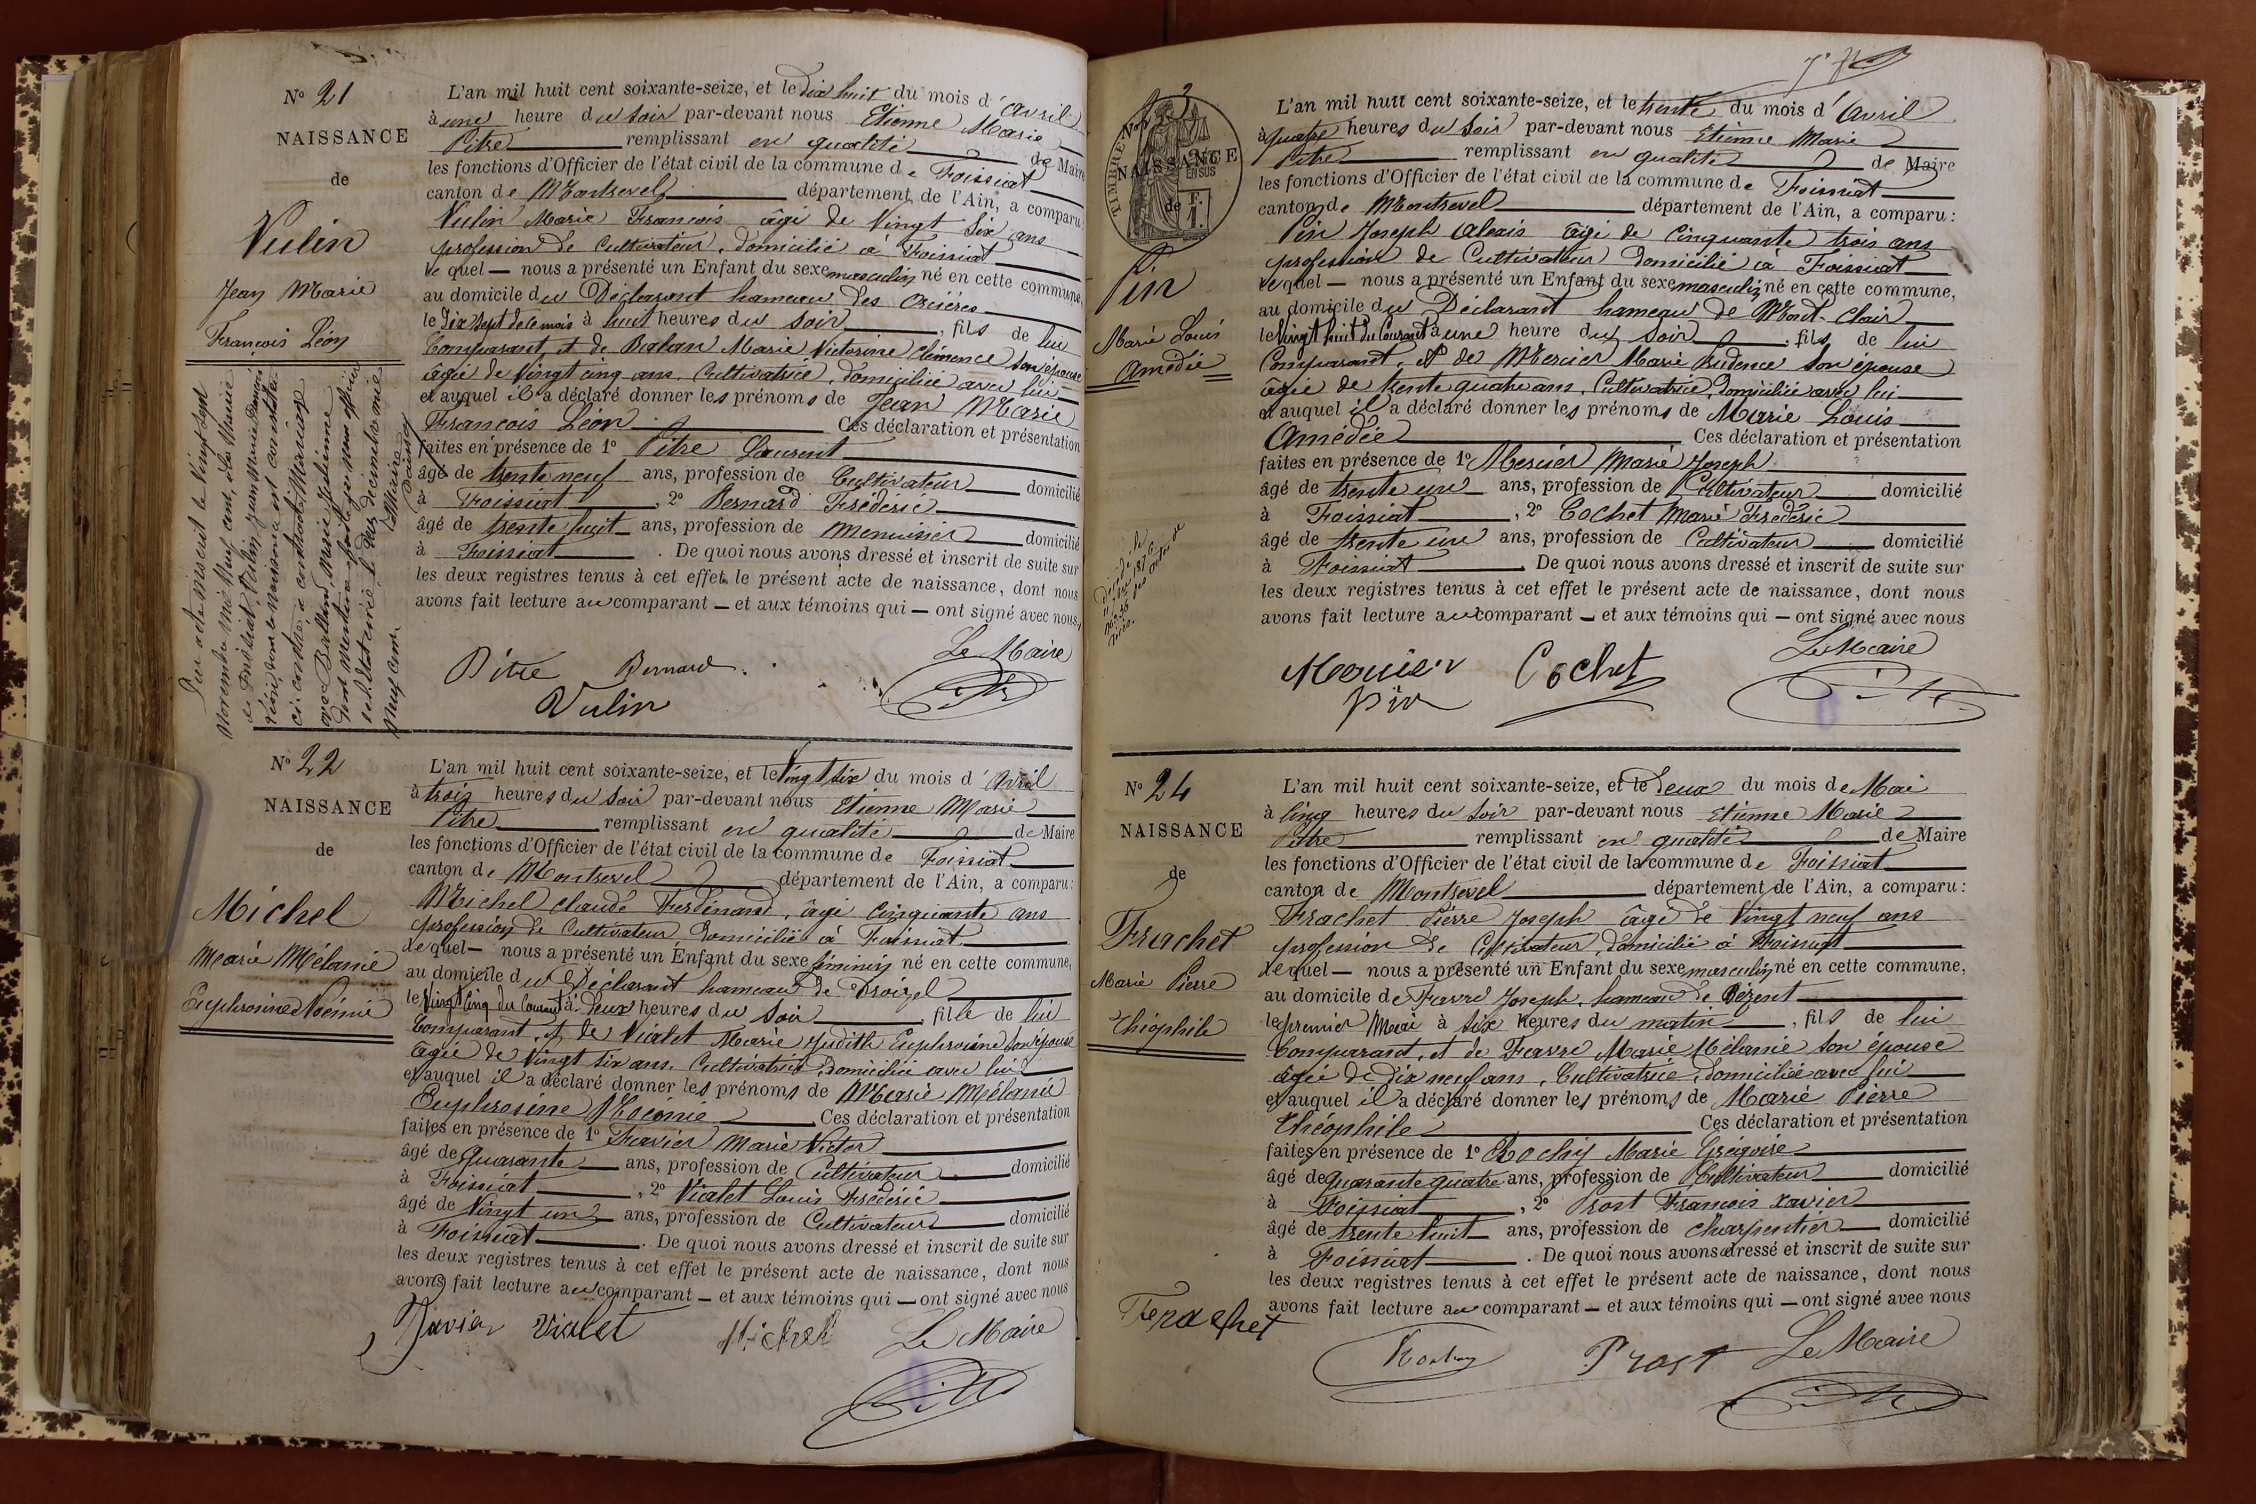 N° 21
NAISSANCE
de
Vulin
Jean Marie
François Léon
L'an mil huit cent soixante-seize, et le dix huit du mois d'Avril
à une heure du soir par-devant nous Etienne Marie
Pitre remplissant en qualité de Maire
les fonctions d'Officier de l'état civil de la commune de Foissiat
canton de Montrevel département de l'Ain, a comparu
Vulin Marie François âgé de Vingt Six ans
profession de Cultivateur, domicilié à Foissiat
le quel — nous a présenté un Enfant du sexe masculin né en cette commune,
au domicile du Déclarant hameau des
le Dix Sept de ce mois à huit heures du soir, fils de lui
Comparant, et de Balan Marie Victorine Clémence son épouse
âgée de Vingt cinq ans, Cultivatrice, domiciliée avec lui
et auquel il a déclaré donner les prénoms de Jean Marie
François Léon Ces déclaration et présentation
faites en présence de 1° Pitre Laurent
âgé de trente neuf ans, profession de Cultivateur domicilié
à Foissiat, 2° Bernard Frédéric
âgé de trente huit ans, profession de menuisier domicilié
à Foissiat. De quoi nous avons dressé et inscrit de suite sur
les deux registres tenus à cet effet le présent acte de naissance, dont nous
avons fait lecture au comparant — et aux témoins qui — ont signé avec nous,
Le Maire
Pitre Bernard
Vulin
N° 22
NAISSANCE
de
Michel
Marie Mélanie
Euphrosine Noémie
L'an mil huit cent soixante-seize, et le Vingt Six du mois d'Avril
à trois heures du soir par-devant nous Etienne Marie
Pitre remplissant en qualité de Maire
les fonctions d'Officier de l'état civil de la commune de Foissiat
canton de Montrevel département de l'Ain, a comparu:
Michel Claude Ferdinand, âgé cinquante ans
profession de Cultivateur domicilié à Foissiat
le quel — nous a présenté un Enfant du sexe féminin né en cette commune,
au domicile du Déclarant hameau de
le Vingt Cinq du Courant à Deux heures du Soir, fille de lui
Comparant, et de Vialet Marie Judith Euphrosine son épouse
âgée de Vingt six ans, Cultivatrice, domiciliée avec lui
et auquel il a déclaré donner les prénoms de Marie Mélanie
Euphrosine Noémie Ces déclaration et présentation
faites en présence de 1° Favier Marie Victor
âgé de quarante ans, profession de Cultivateur domicilié
à Foissiat, 2° Vialet Louis Frédéric
âgé de Vingt un ans, profession de Cultivateur domicilié
à Foissiat. De quoi nous avons dressé et inscrit de suite sur
les deux registres tenus à cet effet le présent acte de naissance, dont nous
avons fait lecture au comparant — et aux témoins qui — ont signé avec nous
Favier Vialet Michel Le Maire
NAISSANCE
de
Pin
Marie Louis
Amédée
L'an mil huit cent soixante-seize, et le trente du mois d'Avril
à quatre heures du Soir par-devant nous Etienne Marie
Pitre remplissant en qualité de Maire
les fonctions d'Officier de l'état civil de la commune de Foissiat
canton de Montrevel département de l'Ain, a comparu:
Pin Joseph Alexis âgé de Cinquante trois ans
profession de Cultivateur domicilié à Foissiat
le quel — nous a présenté un Enfant du sexe masculin né en cette commune,
au domicile du Déclarant hameau de Mont-Clair
le Vingt huit du Courant à une heure du soir, fils de lui
Comparant, et de Mercier Marie Prudence son épouse
âgée de trente quatre ans, Cultivatrice, domiciliée avec lui
et auquel il a déclaré donner les prénoms de Marie Louis
Amédée Ces déclaration et présentation
faites en présence de 1° Mercier Marie Joseph
âgé de trente un ans, profession de Cultivateur domicilié
à Foissiat, 2° Cochet Marie Frédéric
âgé de trente un ans, profession de Cultivateur domicilié
à Foissiat. De quoi nous avons dressé et inscrit de suite sur
les deux registres tenus à cet effet le présent acte de naissance, dont nous
avons fait lecture au comparant — et aux témoins qui — ont signé avec nous
Le Maire
Cochet
Pin
N° 24
NAISSANCE
de
Frachet
Marie Pierre
Théophile
L'an mil huit cent soixante-seize, et le Deux du mois de Mai
à Cinq heures du Soir par-devant nous Etienne Marie
Pitre remplissant en qualité de Maire
les fonctions d'Officier de l'état civil de la commune de Foissiat
canton de Montrevel département de l'Ain, a comparu:
Frachet Pierre Joseph âgé de Vingt neuf ans
profession de Cultivateur, domicilié à Foissiat
le quel — nous a présenté un Enfant du sexe masculin né en cette commune,
au domicile de Favre Joseph, hameau de
le premier Mai à Six heures du matin, fils de lui
Comparant, et de Favre Marie Mélanie son épouse
âgée de dix neuf ans, Cultivatrice, domiciliée avec lui
et auquel il a déclaré donner les prénoms de Marie Pierre
Théophile Ces déclaration et présentation
faites en présence de 1° Rochy Marie Grégoire
âgé de quarante quatre ans, profession de Cultivateur domicilié
à Foissiat, 2° Prost François Xavier
âgé de trente huit ans, profession de Charpentier domicilié
à Foissiat. De quoi nous avons dressé et inscrit de suite sur
les deux registres tenus à cet effet le présent acte de naissance, dont nous
avons fait lecture au comparant — et aux témoins qui — ont signé avec nous
Frachet
Prost Le Maire